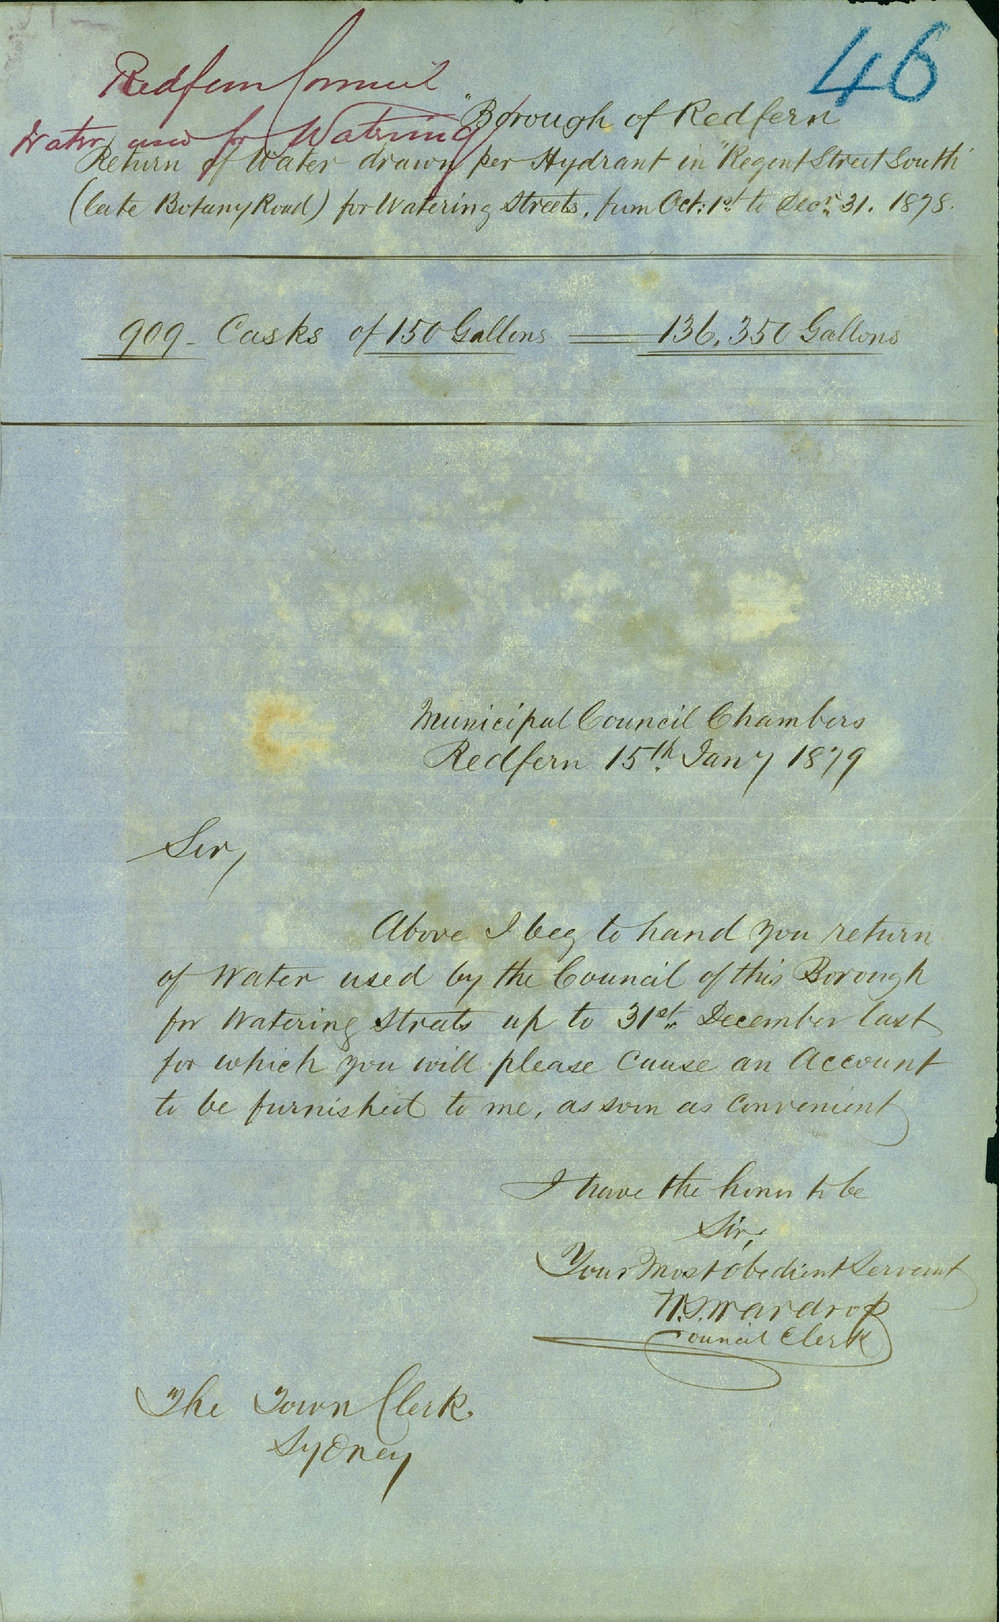 46
Redfern Council
Water used for Watering
"Borough of Redfern"
Return of Water drawn per Hydrant in "Regent Street South"
(late Botany Road) for Watering Streets, from Oct: 1st to Decr. 31. 1878.
909 - Casks of 150 Gallons = 136,350 Gallons
Municipal Council Chambers
Redfern 15th Jany 1879
Sir,
Above I beg to hand you return
of Water used by the Council of this Borough
for Watering Streets up to 31st December last
for which you will please cause an Account
to be furnished to me, as soon as convenient
I have the honor to be
Sir,
Your Most obedient Servant
W.S. Wardrop
Council Clerk
The Town Clerk
Sydney